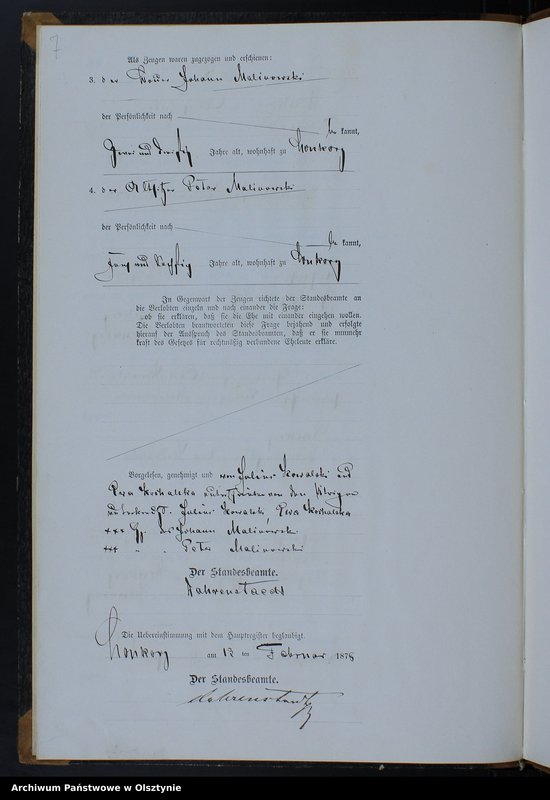 7
Als Zeugen waren zugezogen und erschienen:
3. der Bauer Johann Malinowski
der Persönlichkeit nach
be kannt,
Zwei und dreißig Jahre alt, wohnhaft zu Honkorz
4. der Altsitzer Peter Malinowski
der Persönlichkeit nach
be kannt,
Fünf und Sechszig Jahre alt, wohnhaft zu
In Gegenwart der Zeugen richtete der Standesbeamte an
die Verlobten einzeln und nach einander die Frage:
ob sie erklären, daß sie die Ehe mit einander eingehen wollen.
Die Verlobten beantworteten diese Frage bejahend und erfolgte
hierauf der Ausspruch des Standesbeamten, daß er sie nunmehr
kraft des Gesetzes für rechtmäßig verbundene Eheleute erkläre.
Vorgelesen, genehmigt und von Julius Kowalski und
Ewa unterschrieben von den Übrigen
Julius Kowalski Ewa
+++ des Johann Malinowski
+++ " " Peter Malinowski
Der Standesbeamte.
Zahrenstaedt
Die Uebereinstimmung mit dem Hauptregister beglaubigt.
am 12 ten Februar 1878
Der Standesbeamte.
Zahrenstaedt
Archiwum Państwowe w Olsztynie